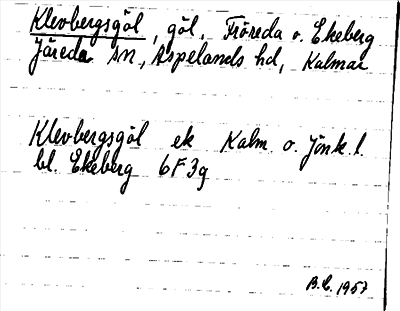 Klevbergsgöl, göl, Fröreda o. Ekeberg
Järeda sn, Aspelands hd, Kalmar
Klevbergsgöl ek Kalm. o. Jönk. l.
bl. Ekeberg 6F3g
1957